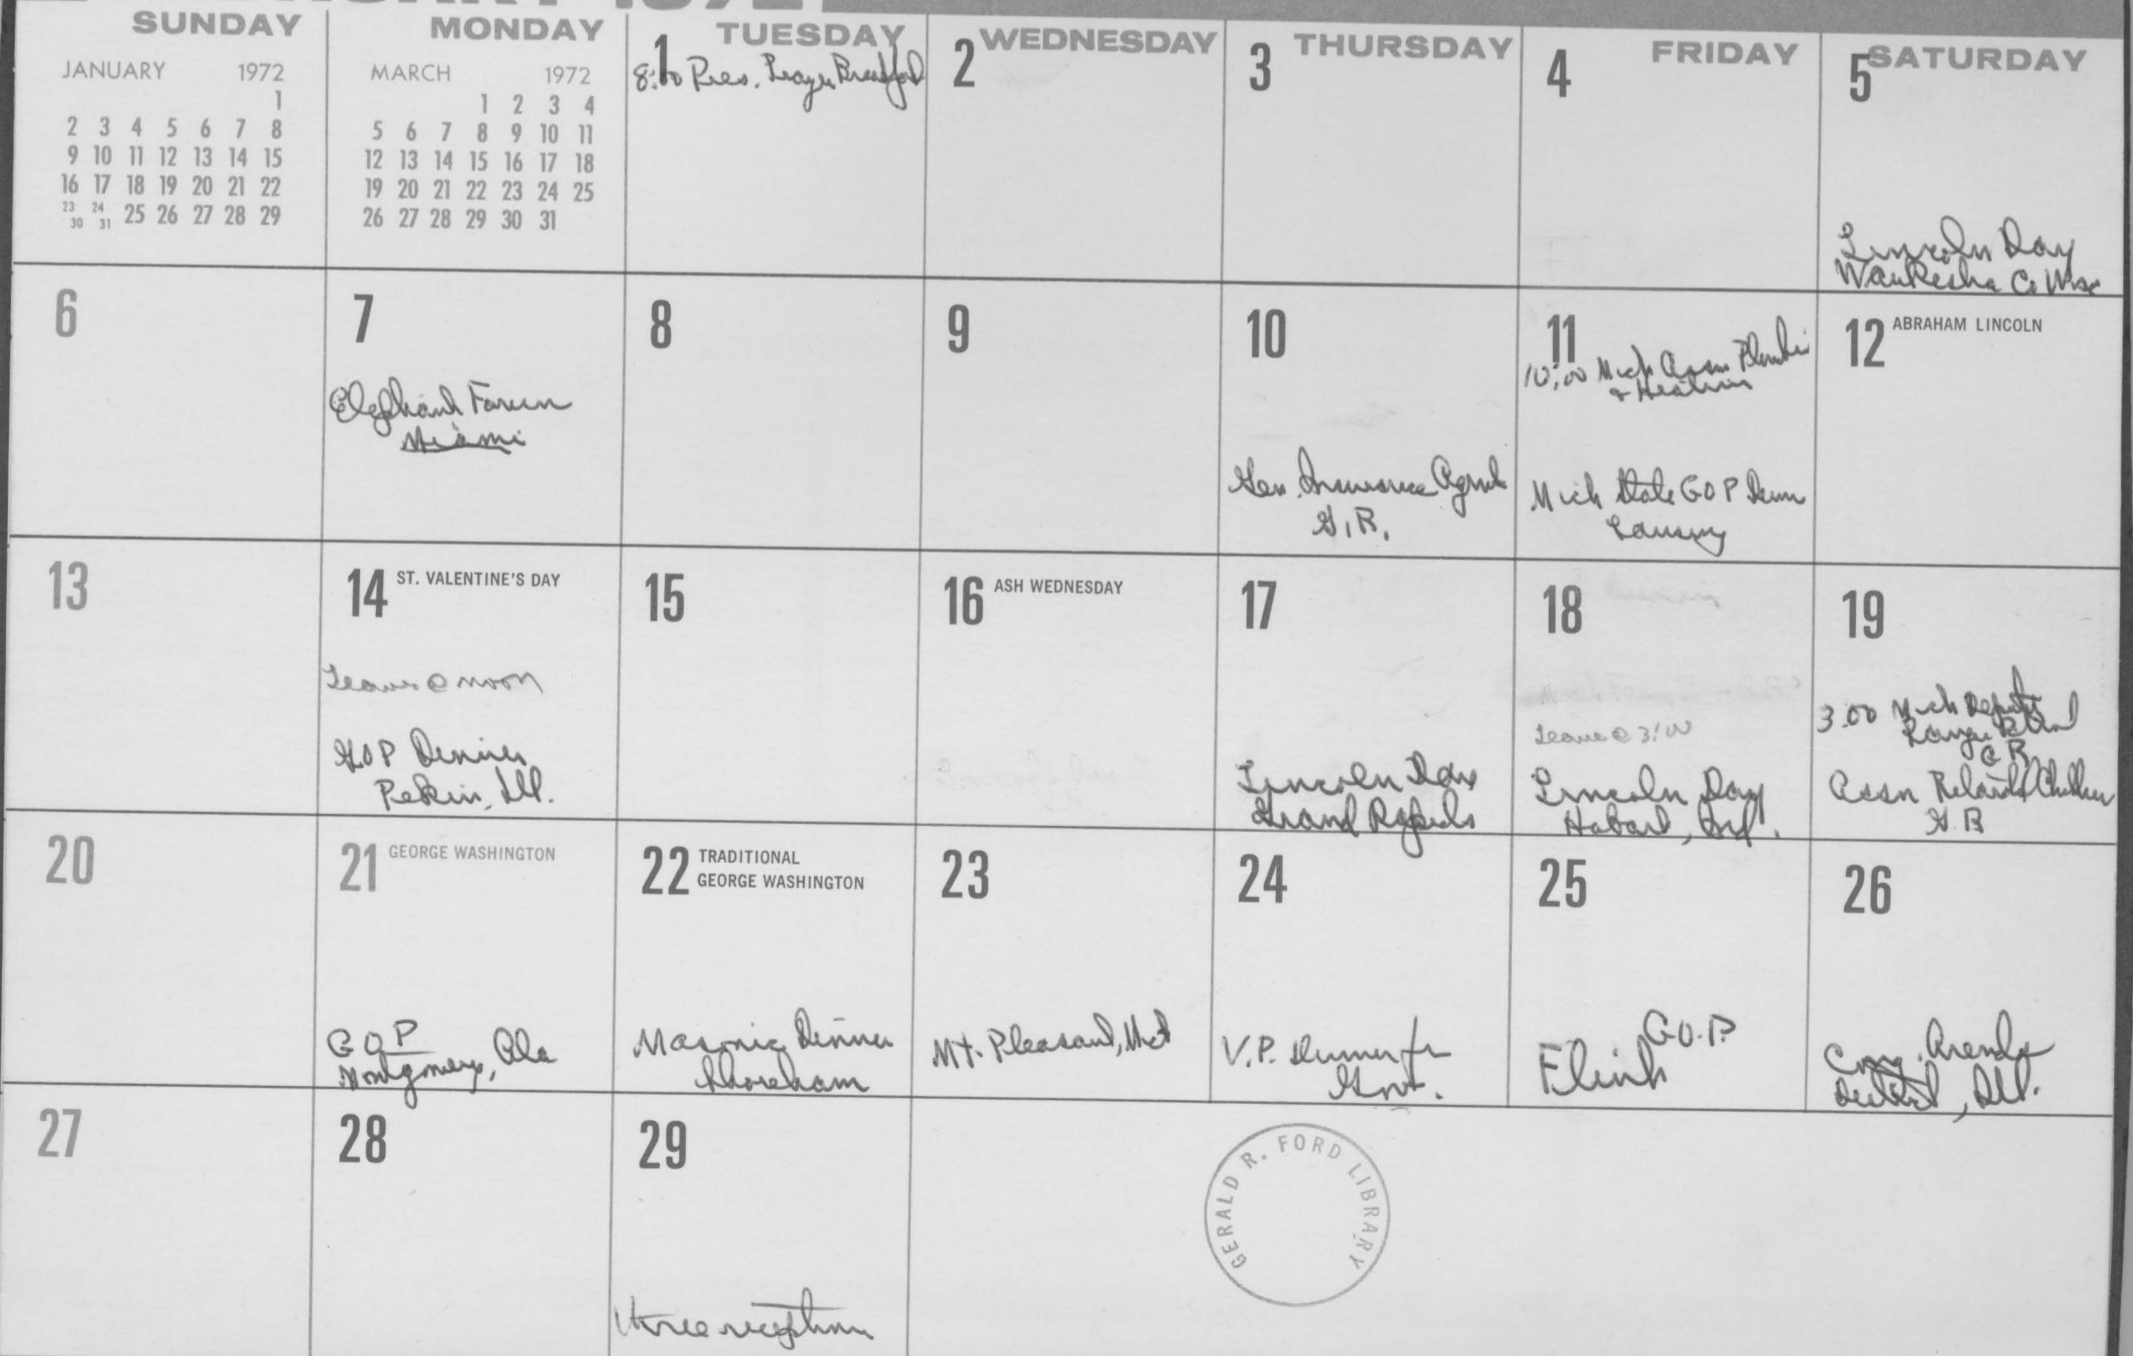 SUNDAY MONDAY TUESDAY WEDNESDAY THURSDAY FRIDAY SATURDAY
JANUARY 1972
1
2 3 4 5 6 7 8
9 10 11 12 13 14 15
16 17 18 19 20 21 22
23 24 25 26 27 28 29
30 31
MARCH 1972
1 2 3 4
5 6 7 8 9 10 11
12 13 14 15 16 17 18
19 20 21 22 23 24 25
26 27 28 29 30 31
1
8:00 Pres. Prayer Breakfast
2
3
4
5
Lincoln Day
Waukesha Co Wisc
6
7
Elephant Forum
Miami
8
9
10
Gen. Insurance Agents
G.R.
11
10:00 Mich Assn
& Heating
Mich State GOP Dinner
Lansing
12 ABRAHAM LINCOLN
13
14 ST. VALENTINE'S DAY
Leave @ noon
GOP Dinner
Pekin, Ill.
15
16 ASH WEDNESDAY
17
Lincoln Day
Grand Rapids
18
Leave @ 3:00
Lincoln Day
Hobart, Ind.
19
3:00 Mich
G R
Assn Retarded Children
G.R
20
21 GEORGE WASHINGTON
GOP
Montgomery, Ala
22 TRADITIONAL
GEORGE WASHINGTON
Masonic Dinner
Shoreham
23
Mt. Pleasant, Mich
24
V.P. Dinner for
25
G.O.P.
Flint
26
Cong. Arends
District, Ill.
27
28
29
reception
GERALD R. FORD LIBRARY